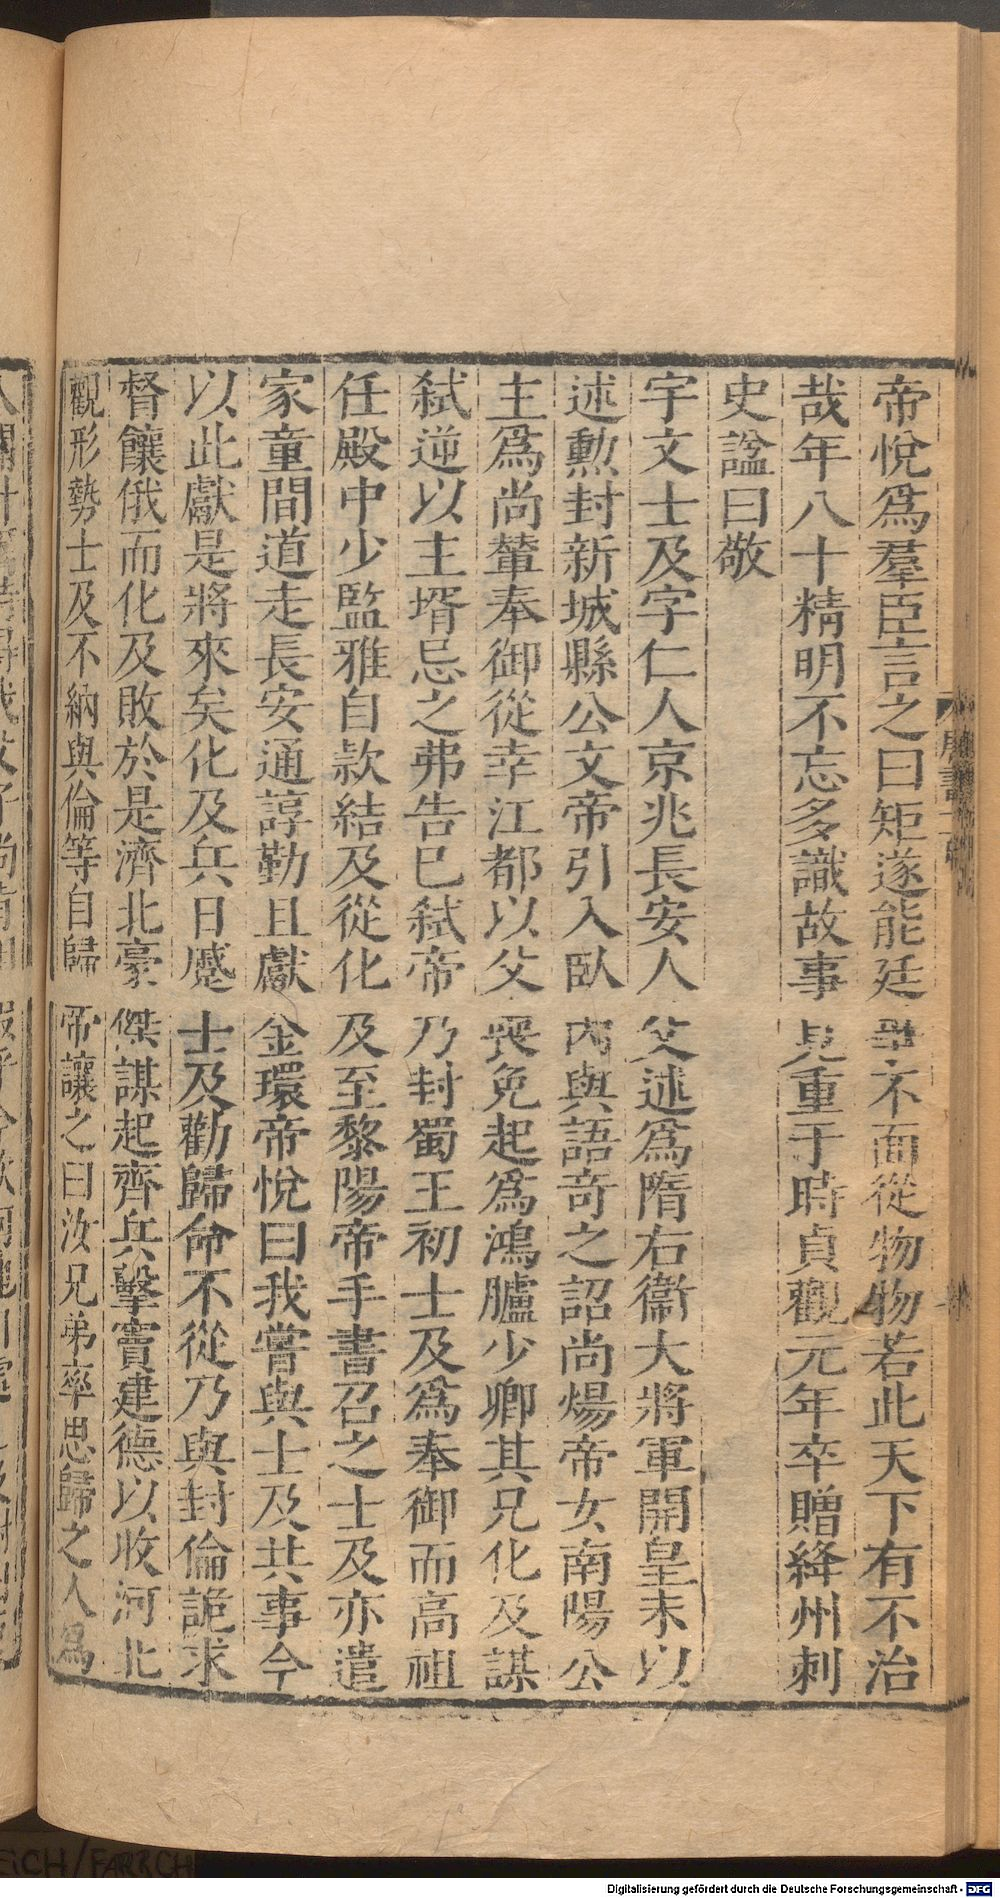 帝悅爲羣臣言之曰矩遂能廷爭不面從物物若此天下有不治
哉年八十精明不忘多識故事見重于時貞觀元年卒贈絳州刺
史諡曰敬
宇文士及字仁人京兆長安人父述爲隋右衞大將軍開皇末以
述勲封新城縣公文帝引入臥內與語奇之詔尚煬帝女南陽公
主爲尚輦奉御從幸江都以父喪免起爲鴻臚少卿其兄化及謀
弑逆以主壻忌之弗告已弑帝乃封蜀王初士及爲奉御而高祖
任殿中少監雅自款結及從化及至黎陽帝手書召之士及亦遣
家童間道走長安通諄勤且獻金環帝悅曰我嘗與士及共事今
以此獻是將來矣化及兵日蹙士及勸歸命不從乃與封倫詭求
督饟俄而化及敗於是濟北豪傑謀起齊兵擊竇建德以收河北
觀形勢士及不納與倫等自歸帝讓之曰汝兄弟率思歸之人爲
Digitalisierung gefördert durch die Deutsche Forschungsgemeinschaft - DFG